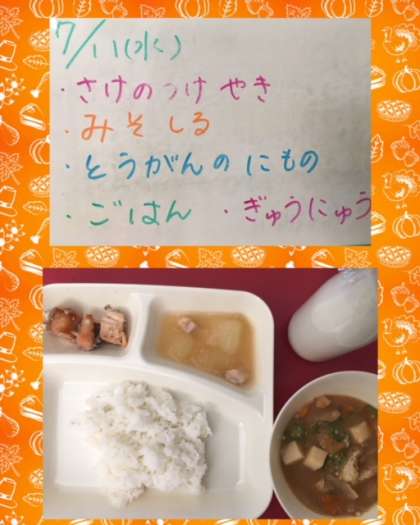 7/11(水)
・さけのつけやき
・みそしる
・とうがんのにもの
・ごはん ・ぎゅうにゅう